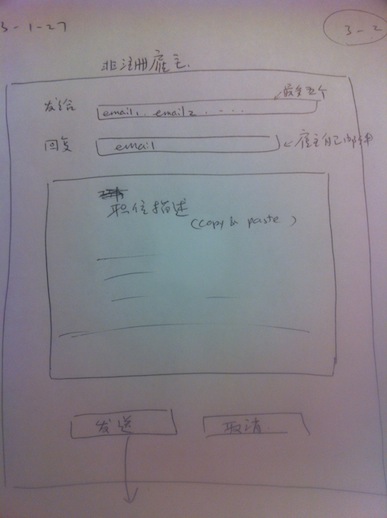 3-1-27
3-2
非注册雇主
最多五个
发给 email1, email2 .....
回复 email 雇主自己邮件
职位描述
(copy & paste)
发送 取消